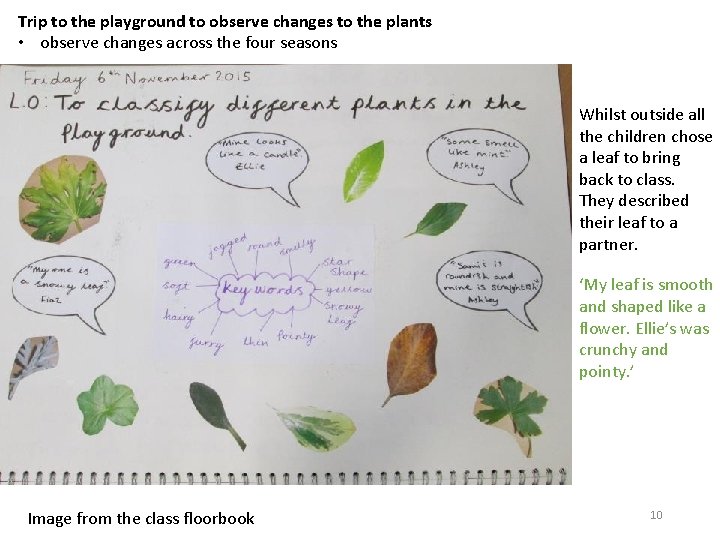 Trip to the playground to observe changes to the plants
• observe changes across the four seasons
Friday 6th November 2015
L.O: To classify different plants in the
Playground.
"Mine looks
like a candle."
ELLIE
"Some smell
like mint"
Ashley
"My one is
a snowy leaf"
Fiaz
"Sami's is
roundish and
mine is straightish"
Ashley
key words
green
jagged
round
smelly
star
shape
yellow
snowy
leaf
pointy
thin
furry
hairy
soft
Whilst outside all
the children chose
a leaf to bring
back to class.
They described
their leaf to a
partner.
‘My leaf is smooth
and shaped like a
flower. Ellie’s was
crunchy and
pointy.’
Image from the class floorbook
10